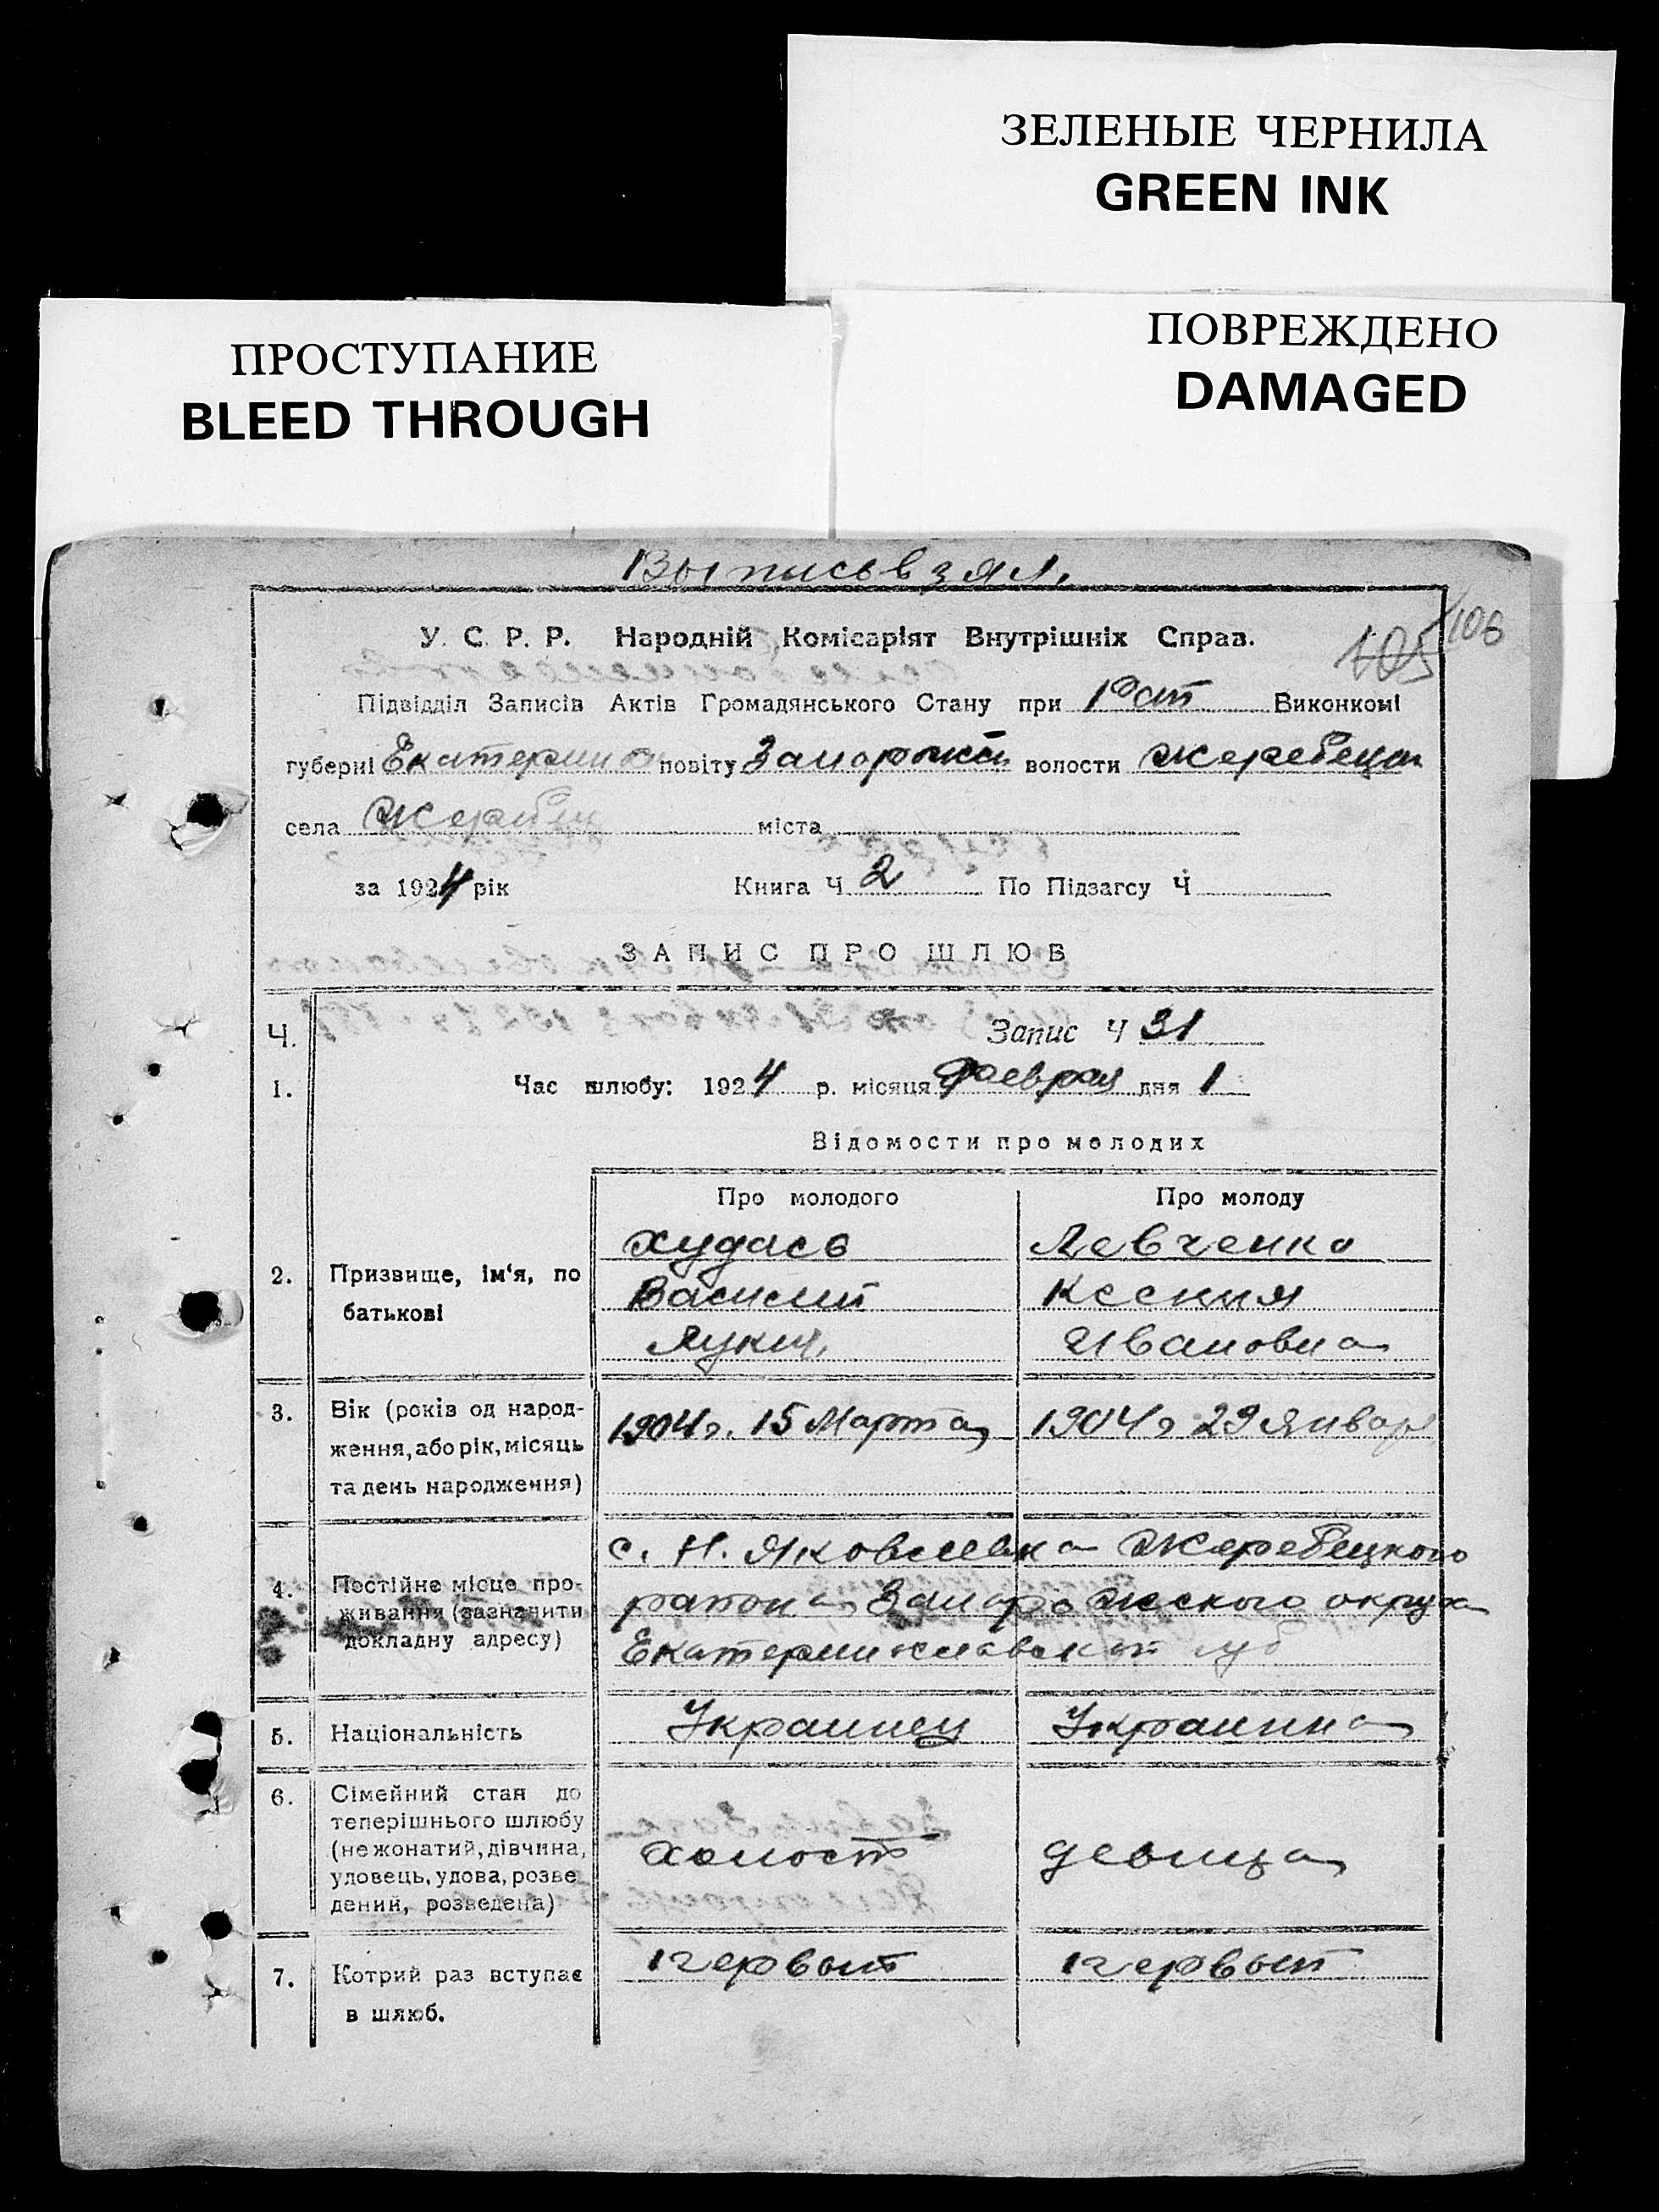 ЗЕЛЕНЫЕ ЧЕРНИЛА
GREEN INK
ПРОСТУПАНИЕ
BLEED THROUGH
ПОВРЕЖДЕНО
DAMAGED
Выпись взял.
У. С. Р. Р. Народній Комісаріят Внутрішніх Справ.
105 106
Підвідділ Записів Актів Громадянського Стану при Виконкомі
губерні Екатерино повіту Запорожск волости Жеребецк
села Жеребец міста
за 1924 рік Книга Ч 2 По Підзагсу Ч
ЗАПИС ПРО ШЛЮБ
Ч. Запис Ч 31
1. Час шлюбу: 1924 р. місяця Февраля дня 1
Відомости про молодих
Про молодого Про молоду
Худась Левченко
2. Призвище, ім'я, по Василий Ксения
батькові Лукич. Ивановна
3. Вік (років од народ- 1904 г. 15 Марта 1904 г 29 Января
ження, або рік, місяць
та день народження)
с. Н. Яковлевка Жеребецкого
4. Постійне місце про- района Запорожского округа
живання (зазначити
докладну адресу) Екатеринославской губ
5. Національність Украинец Украинка
6. Сімейний стан до
теперішнього шлюбу
(не жонатий, дівчина, холост девица
уловець, удова, розве
дений, розведена)
7. Котрий раз вступає первый первый
в шлюб.